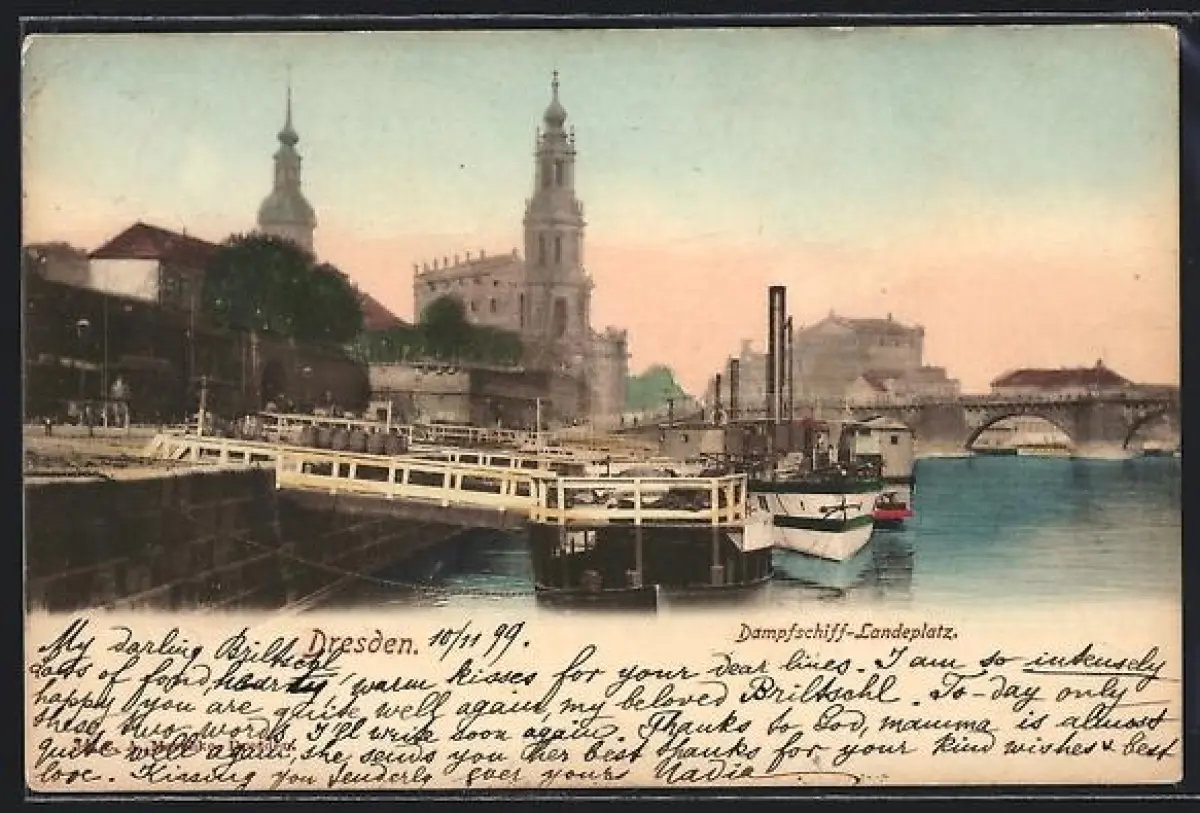 Dresden. 10/11 99.
Dampfschiff-Landeplatz.
My darling Briltschl,
Lots of fond, hearty, warm kisses for your dear lines. I am so intensely
happy you are quite well again, my beloved Briltschl. To-day only
these two words, I'll write soon again. Thanks to God, mamma is almost
quite well again, she sends you her best thanks for your kind wishes & best
love. Kissing you tenderly ever yours Nadia